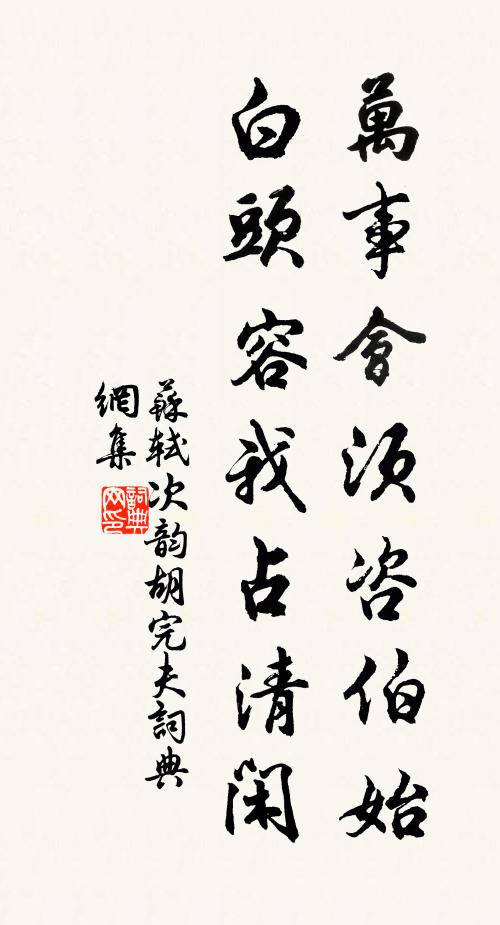 萬事會須咨伯始
白頭容我占清閑
蘇軾次韵胡完夫詞典
網集
詞典
网印